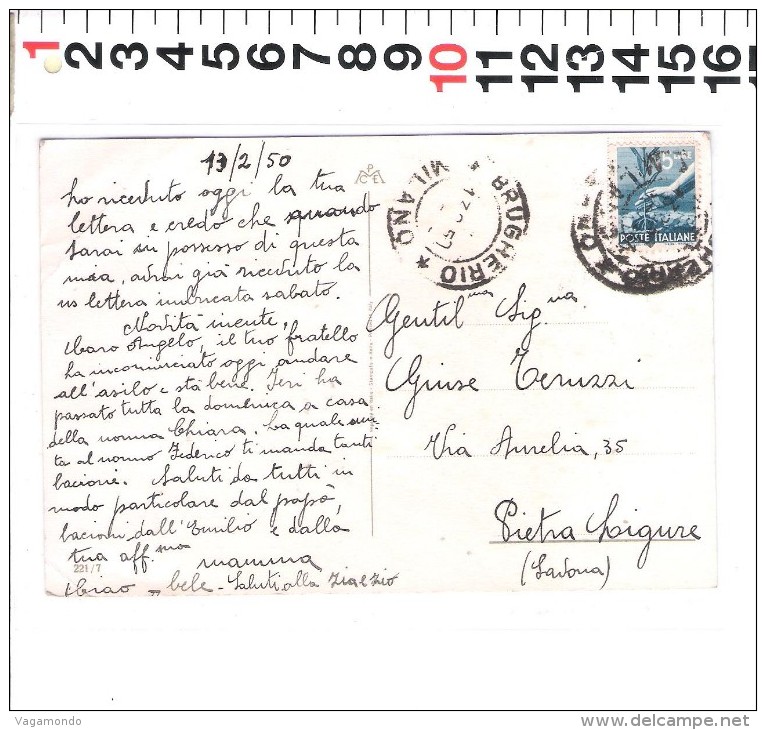 1 2 3 4 5 6 7 8 9 10 11 12 13 14 15 16
13/2/50
ho ricevuto oggi la tua
lettera e credo che quando
sarai in possesso di questa
mia, avrai già ricevuto la
ns lettera imbucata sabato.
Novità niente.
Caro Angelo, il tuo fratello
ha incominciato oggi andare
all'asilo e sta bene. Ieri ha
passato tutta la domenica a casa
della nonna Chiara, la quale
al nonno Federico ti manda tanti
bacioni. Saluti da tutti in
modo particolare dal papà,
bacioni dall'Emilio e dalla
tua aff.ma
mamma
221/7
Ciao bele - Saluti alla Zia e Zio
BRUGHERIO * MILANO *
5 LIRE
POSTE ITALIANE
Gentil.ma Sig.na
Giuse Teruzzi
Via Aurelia, 35
Pietra Ligure
(Savona)
Vagamondo
delcampe.net